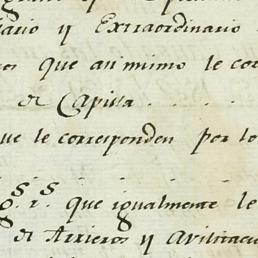 ario y Extraordinario
os que asi mimo le cor
de Capilla . . . .
ue le corresponden por lo
g.s r.s que igualmente le
de Arrieros y Avilitacio